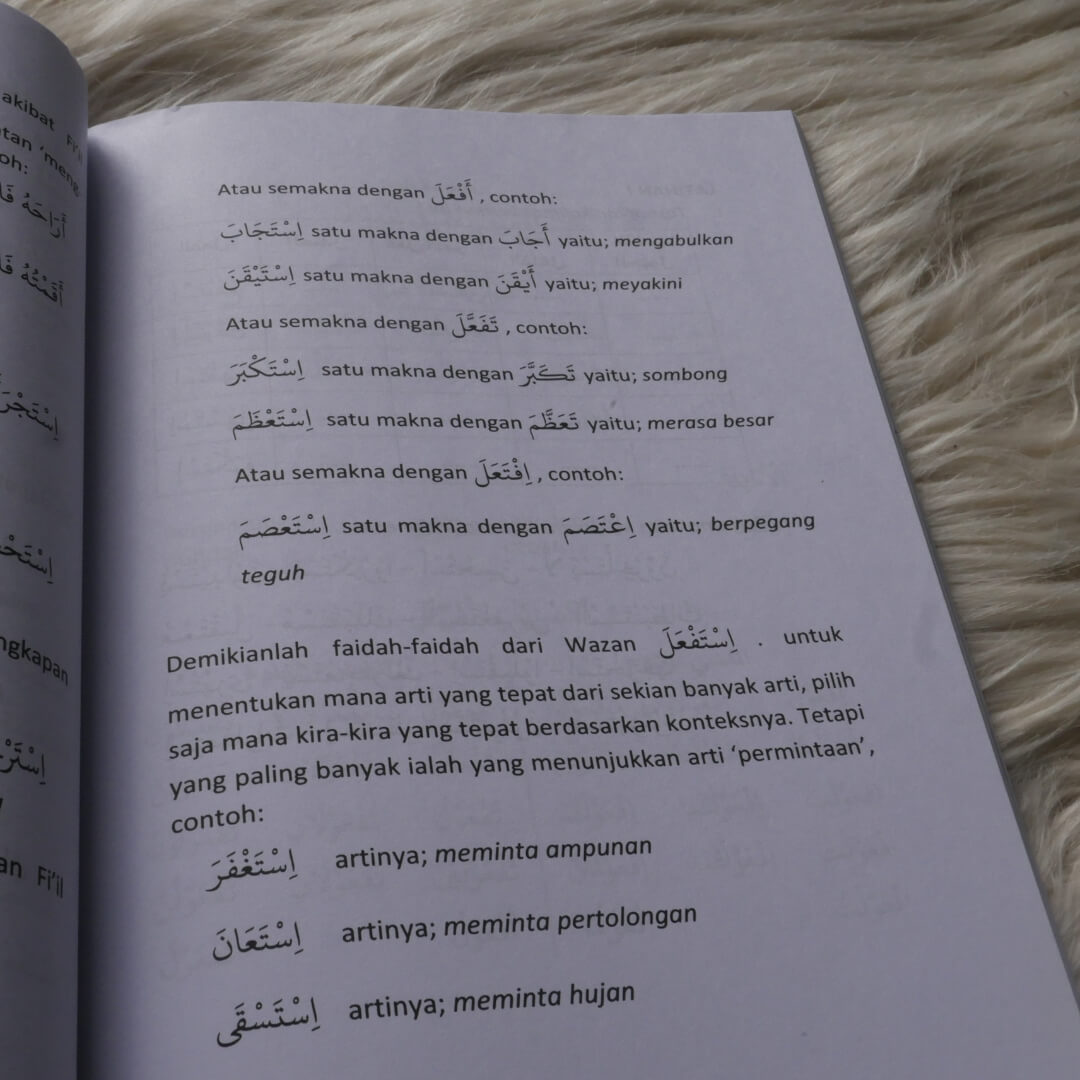 akibat Fi'il
oh:
أَرَاحَهُ
أَقَمْتُهُ
an Fi'il
Atau semakna dengan أَفْعَلَ , contoh:
اِسْتَجَابَ satu makna dengan أَجَابَ yaitu; mengabulkan
اِسْتَيْقَنَ satu makna dengan أَيْقَنَ yaitu; meyakini
Atau semakna dengan تَفَعَّلَ , contoh:
اِسْتَكْبَرَ satu makna dengan تَكَبَّرَ yaitu; sombong
اِسْتَعْظَمَ satu makna dengan تَعَظَّمَ yaitu; merasa besar
Atau semakna dengan اِفْتَعَلَ , contoh:
اِسْتَعْصَمَ satu makna dengan اِعْتَصَمَ yaitu; berpegang
teguh
Demikianlah faidah-faidah dari Wazan اِسْتَفْعَلَ . untuk
menentukan mana arti yang tepat dari sekian banyak arti, pilih
saja mana kira-kira yang tepat berdasarkan konteksnya. Tetapi
yang paling banyak ialah yang menunjukkan arti 'permintaan',
contoh:
اِسْتَغْفَرَ artinya; meminta ampunan
اِسْتَعَانَ artinya; meminta pertolongan
اِسْتَسْقَى artinya; meminta hujan